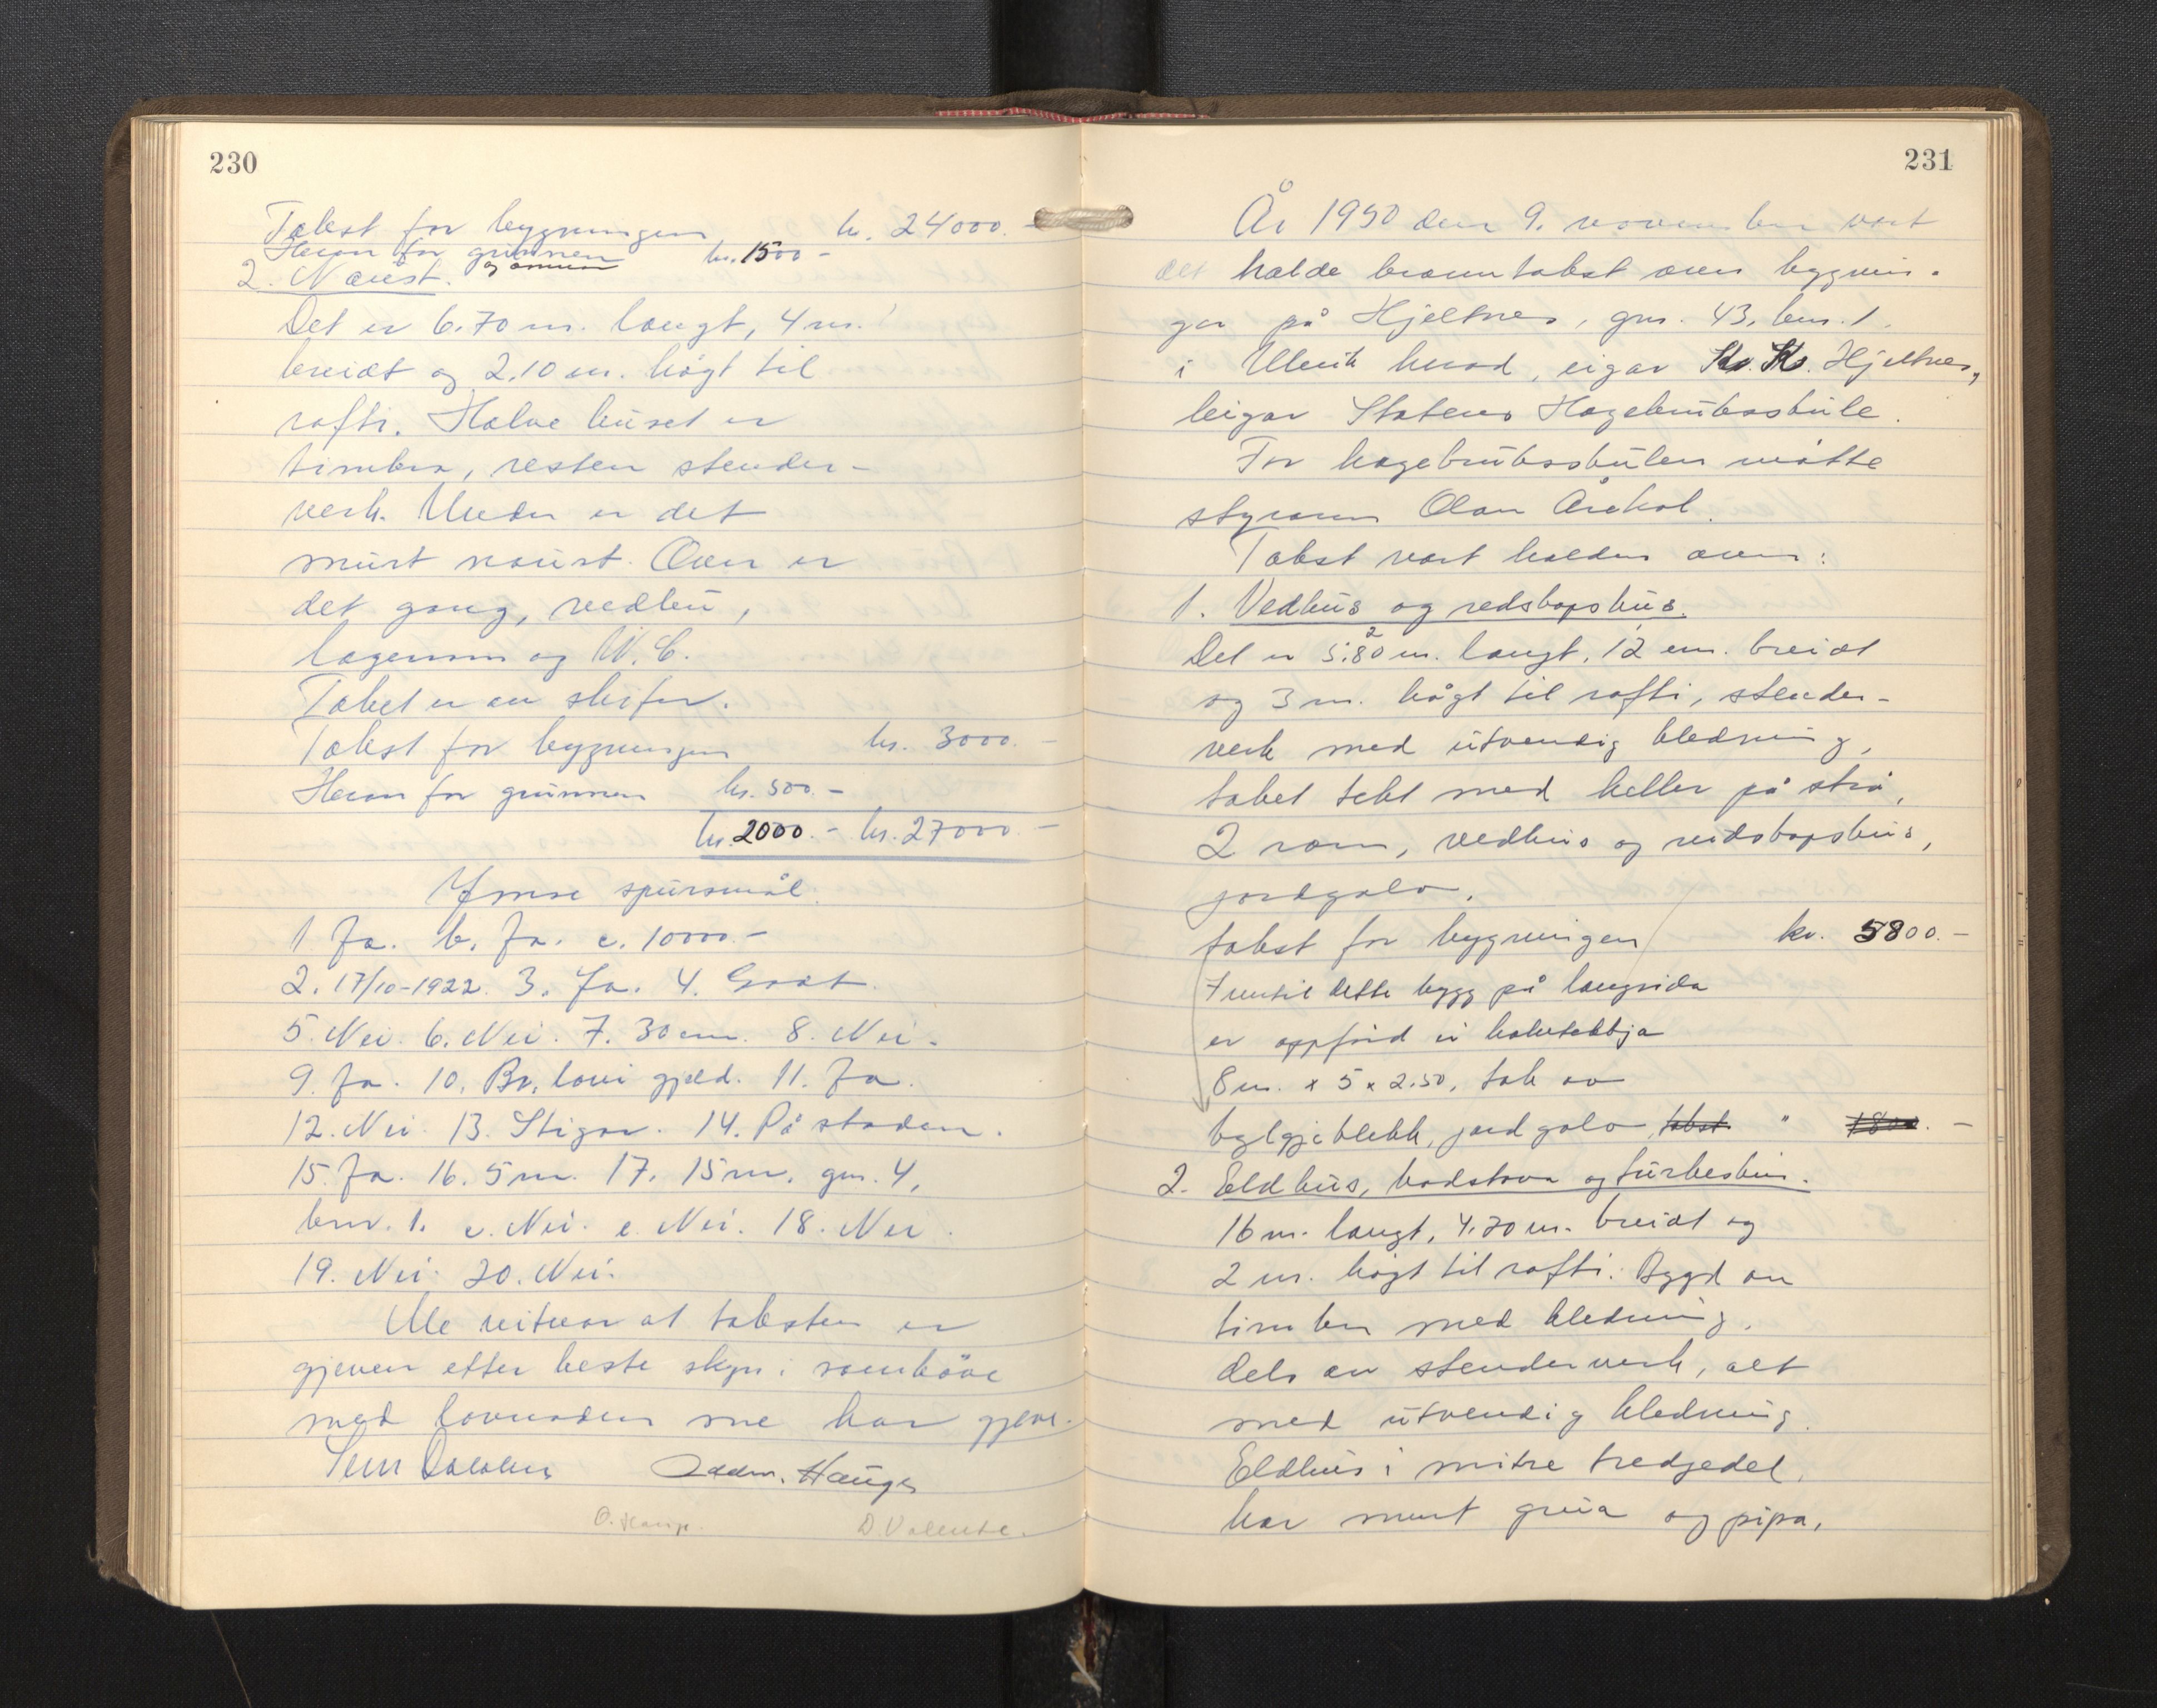 230
Takst for bygningen kr. 24000.-
Herav for grunnen kr. 1500-
og murar
2. Naust.
Det er 6.70 m. langt, 4 m.
breidt og 2.10 m. högt til
rafti. Halve huset er
timbra, resten stender-
verk. Under er det
murt naust. Over er
det gang, vedbu,
lagerrum og W.C.
Taket er av skifer.
Takst for bygningen kr. 3000.-
Herav for grunnen kr. 500.-
kr. 2000.- kr. 27000.-
Ymse spursmål.
1. Ja. b. Ja. c. 10000.-
2. 17/10-1922. 3. Ja. 4. Godt.
5. Nei. 6. Nei. 7. 30 cm. 8. Nei.
9. Ja. 10. Br. lovi gjeld. 11. Ja.
12. Nei. 13. Stigar. 14. På staden.
15. Ja. 16. 5 m. 17. 15 m. gnr. 4,
bnr. 1. c. Nei. e. Nei. 18. Nei.
19. Nei. 20. Nei.
Me vitnar at taksten er
gjeven etter beste skyn i samhöve
med lovnaden me har gjeve.
Oddm. Hauge
O. Hauge.
231
År 1950 den 9. november vart
det halde branntakst over bygnin-
gar på Hjeltnes, gnr. 43, bnr. 1.
i Ulvik herad, eigar Kr. Hjeltnes,
leigar Statens Hagebruksskule.
For hagebruksskulen møtte
styraren Olav
Takst vart halden over:
1. Vedhus og redskapshus.
Det er 5.80 m. langt, 12 m. breidt
2
og 3 m. högt til rafti, stender-
verk med utvendig kledning,
taket tekt med heller på strå,
2 rom, vedhus og reidskapshus,
jordgolv.
takst for bygningen kr. 5800.-
Inntil dette bygg på langsida
er oppförd ei
8 m. x 5 x 2.50, tak av
bylgjeblekk, jordgolv, takst " 1800.-
2. Eldhus, badstova og turkeshus.
16 m. langt, 4.70 m. breidt og
2 m. högt til rafti. Bygd av
timber med kledning,
dels av stenderverk, alt
med utvendig kledning.
Eldhus i mitre tredjedel,
har murt gruva og pipa,